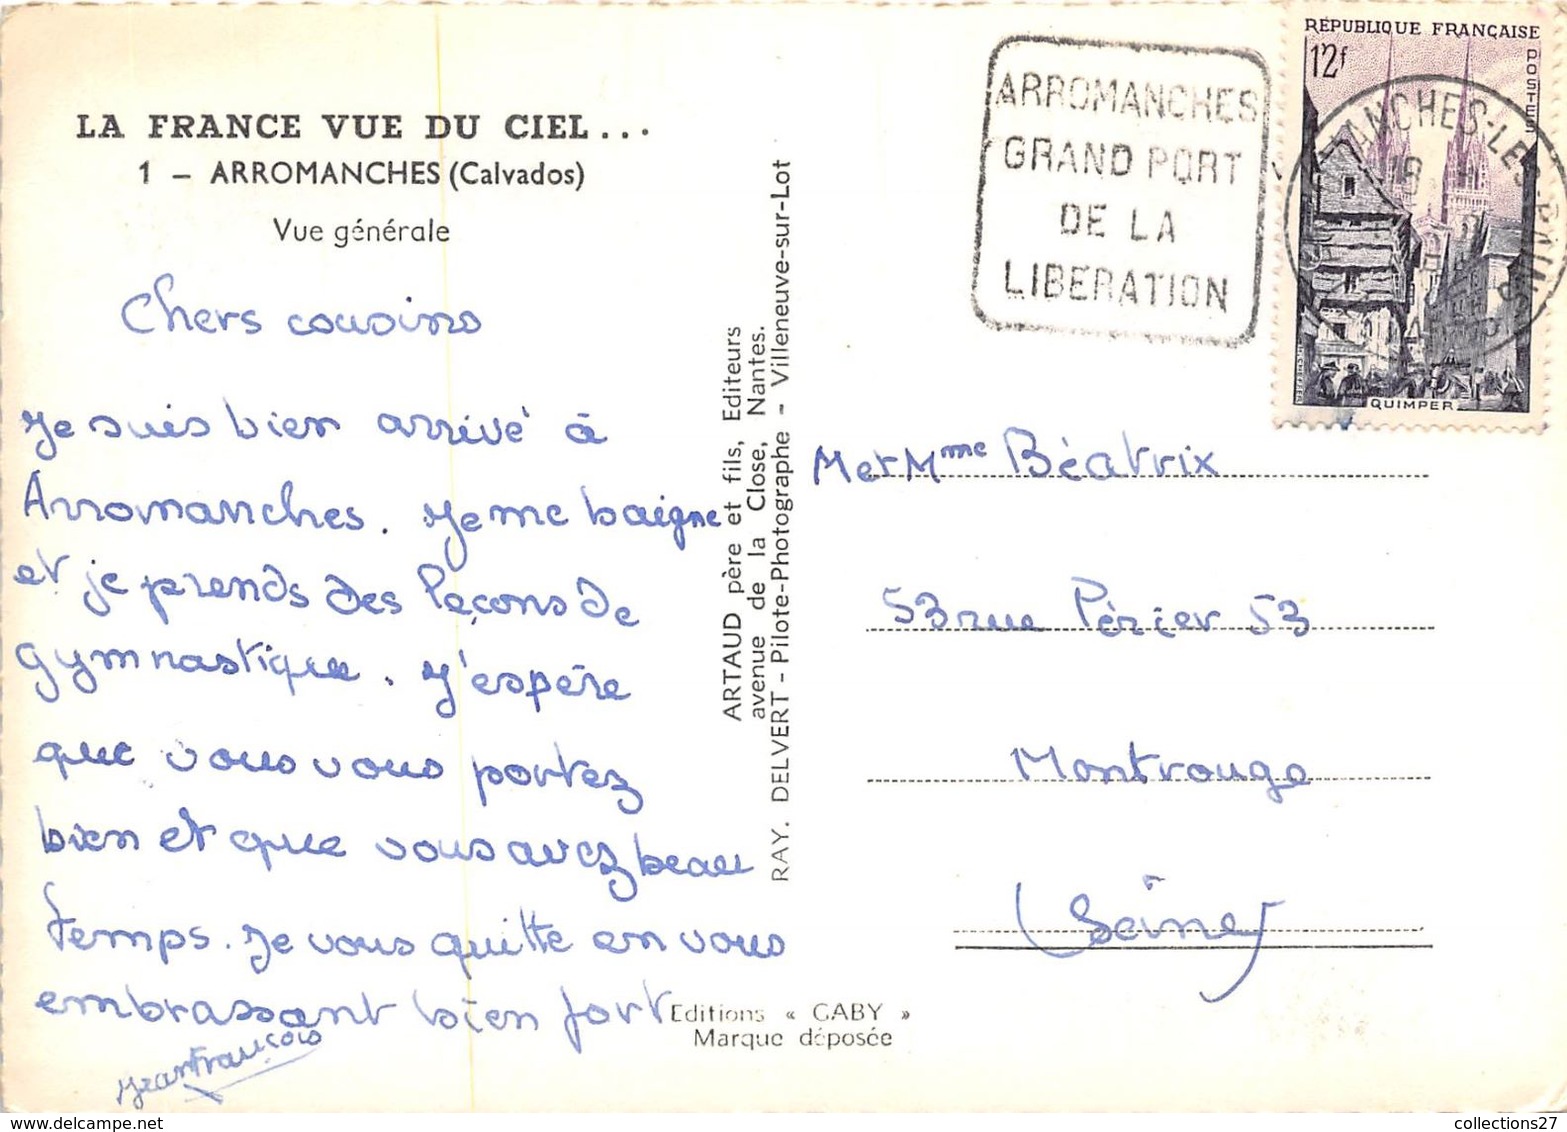 LA FRANCE VUE DU CIEL...
1 - ARROMANCHES (Calvados)
Vue générale
Chers cousins
Je suis bien arrivé à
Arromanches. Je me baigne
et je prends des leçons de
gymnastique. J'espère
que vous vous portez
bien et que vous avez beau
temps. Je vous quitte en vous
embrassant bien fort
Jean François
ARTAUD père et fils, Editeurs
avenue de la Close, Nantes.
RAY. DELVERT - Pilote-Photographe - Villeneuve-sur-Lot
Editions « GABY »
Marque déposée
ARROMANCHES
GRAND PORT
DE LA
LIBERATION
RÉPUBLIQUE FRANÇAISE
12f
POSTES
QUIMPER
ANCHES-LES-BAINS
18
M et Mme Béatrix
53 rue Périer 53
Montrouge
(Seine)
collections27